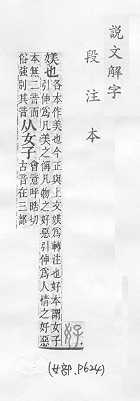 說文解字
段注本
媄也各本作美也今正與上文媄為轉注也好本謂女子
引伸為凡美之偁凡物之好惡引伸為人情之好惡
本無二音而
俗強別其音
从女子
會意呼皓切
古音在三部
(女部. p624)